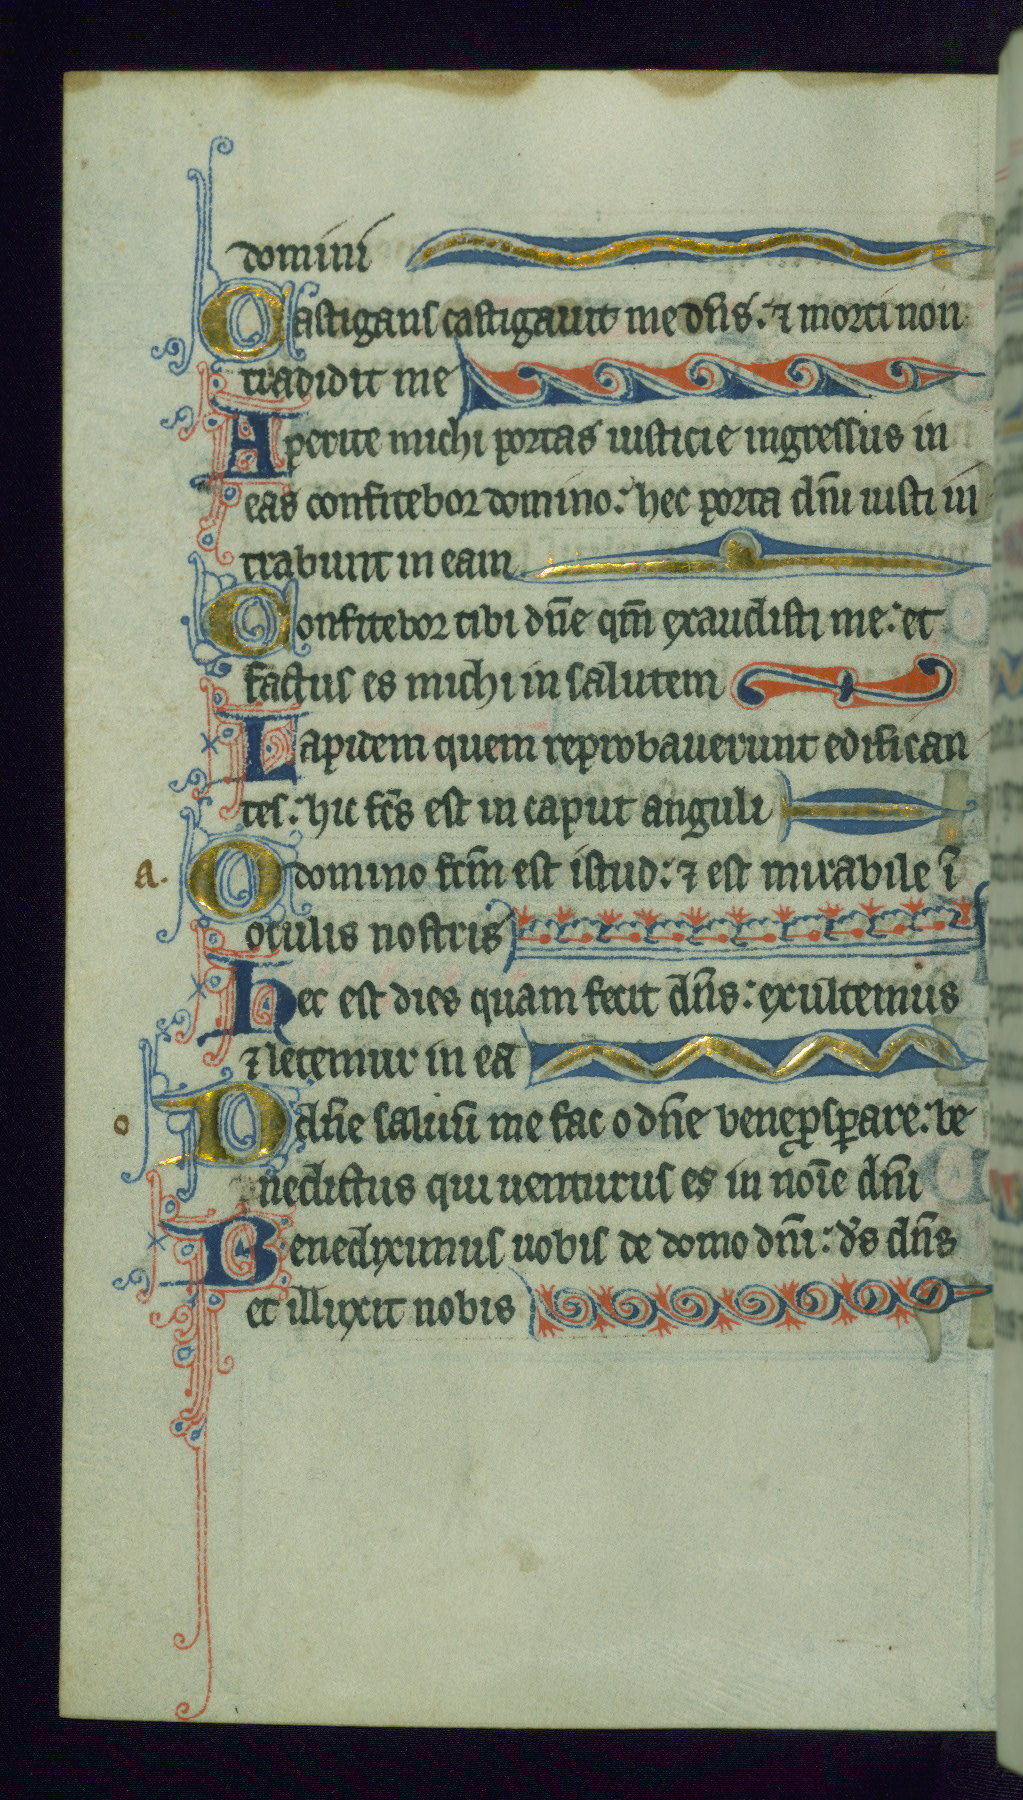 domini
Castigans castigauit me dn̄s: ⁊ morti non
tradidit me
Aperite michi portas iusticie ingressus in
eas confitebor domino: hec porta dn̄i iusti in
trabunt in eam
Confitebor tibi dn̄e qm̄ exaudisti me: et
factus es michi in salutem
Lapidem quem reprobauerunt edifican
tes: hic fc̄s est in caput anguli
a. O domino fcm̄ est istud: ⁊ est mirabile ī
oculis nostris
hec est dies quam fecit dn̄s: exultemus
⁊ letemur in eā
o O dn̄e saluū me fac o dn̄e bene ꝓsꝑare: be
nedictus qui uenturus es in noīe dn̄i
Benediximus uobis de domo dn̄i: ds̄ dn̄s
et illuxit nobis